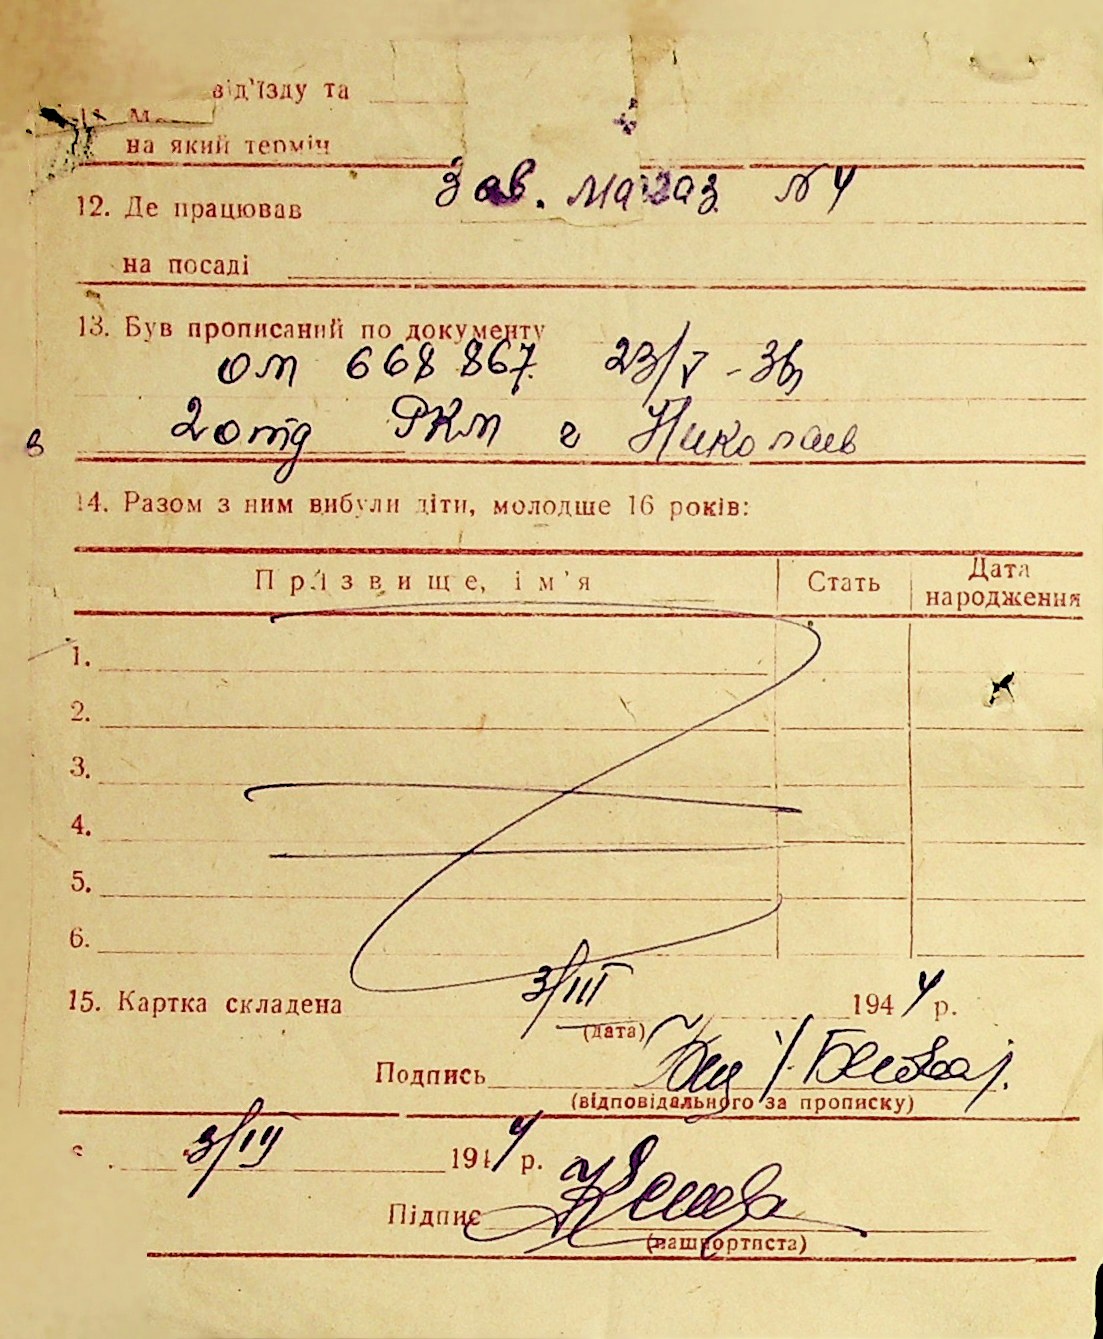 від'їзду та
11. М
на який термін
Зав. магаз. №4
12. Де працював
на посаді
13. Був прописаний по документу
ОМ 668 867 23/V - 36
в 2 отд РКМ г Николаев
14. Разом з ним вибули діти, молодше 16 років:
Прізвище, ім'я Стать Дата народження
1.
2.
3.
4.
5.
6.
15. Картка складена 3/III 1944 р.
(дата)
Подпись
(відповідального за прописку)
3/III 1944 р.
Підпис
(пашпортиста)